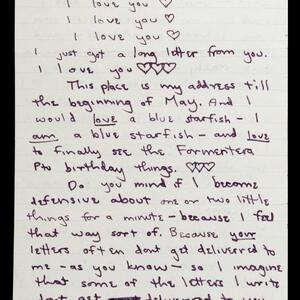 I love you ♡
I love you ♡
I love you ♡
I just got a long letter from you.
I love you ♡♡♡
This place is my address till
the beginning of May. And I
would love a blue starfish - I
am a blue starfish - and love
to finally see the Formentera
Pto birthday things. ♡♡♡
Do you mind if I become
defensive about one or two little
things for a minute - because I feel
that way sort of. Because your
letters often dont get delivered to
me - as you know - so I imagine
that some of the letters I write
dont get delivered to you